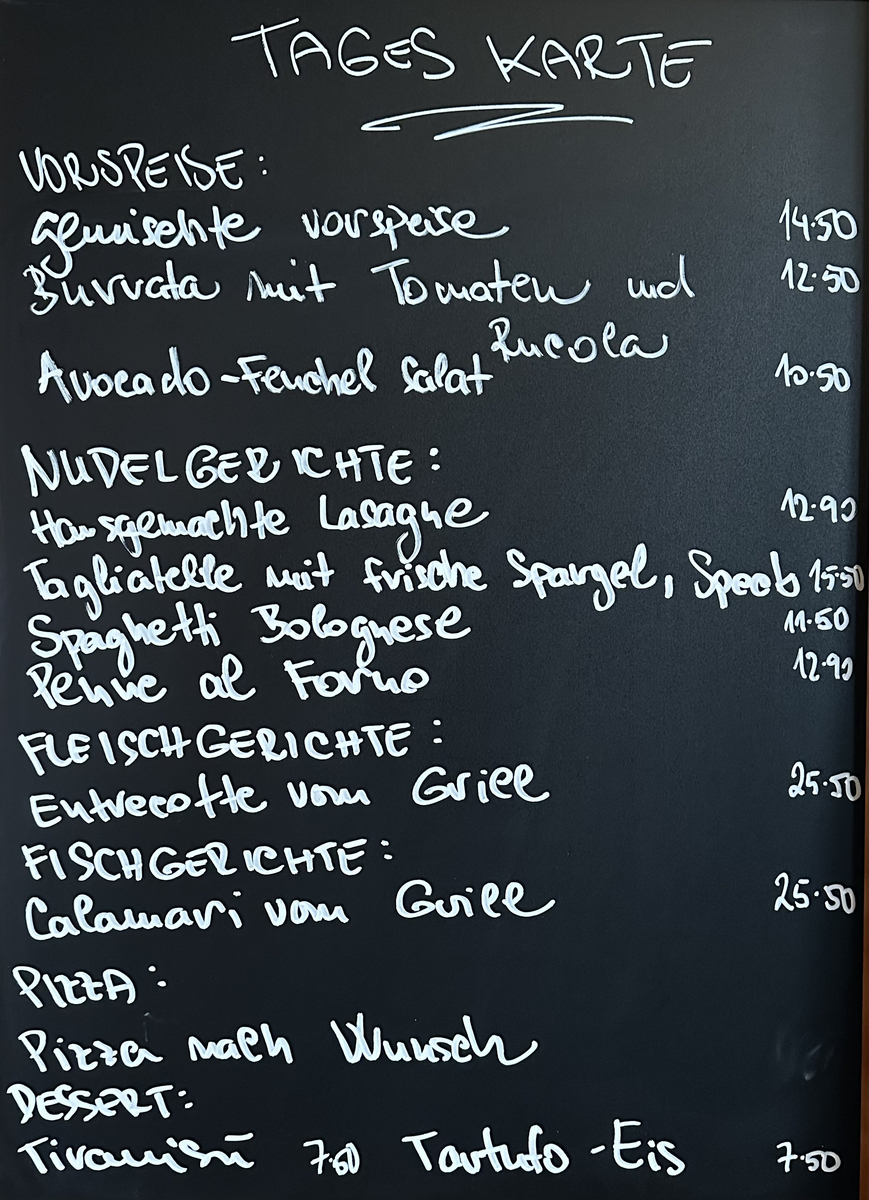 TAGES KARTE
VORSPEISE:
gemischte vorspeise 14.50
Burrata mit Tomaten und 12.50
Rucola
Avocado-Fenchel Salat 10.50
NUDELGERICHTE:
Hausgemachte Lasagne 12.90
Tagliatelle mit frische Spargel, Speck 15.50
Spaghetti Bolognese 11.50
Penne al Forno 12.90
FLEISCHGERICHTE:
Entrecotte vom Grill 25.50
FISCHGERICHTE:
Calamari vom Grill 25.50
PIZZA:
Pizza nach Wunsch
DESSERT:
Tiramisú 7.50 Tartufo-Eis 7.50